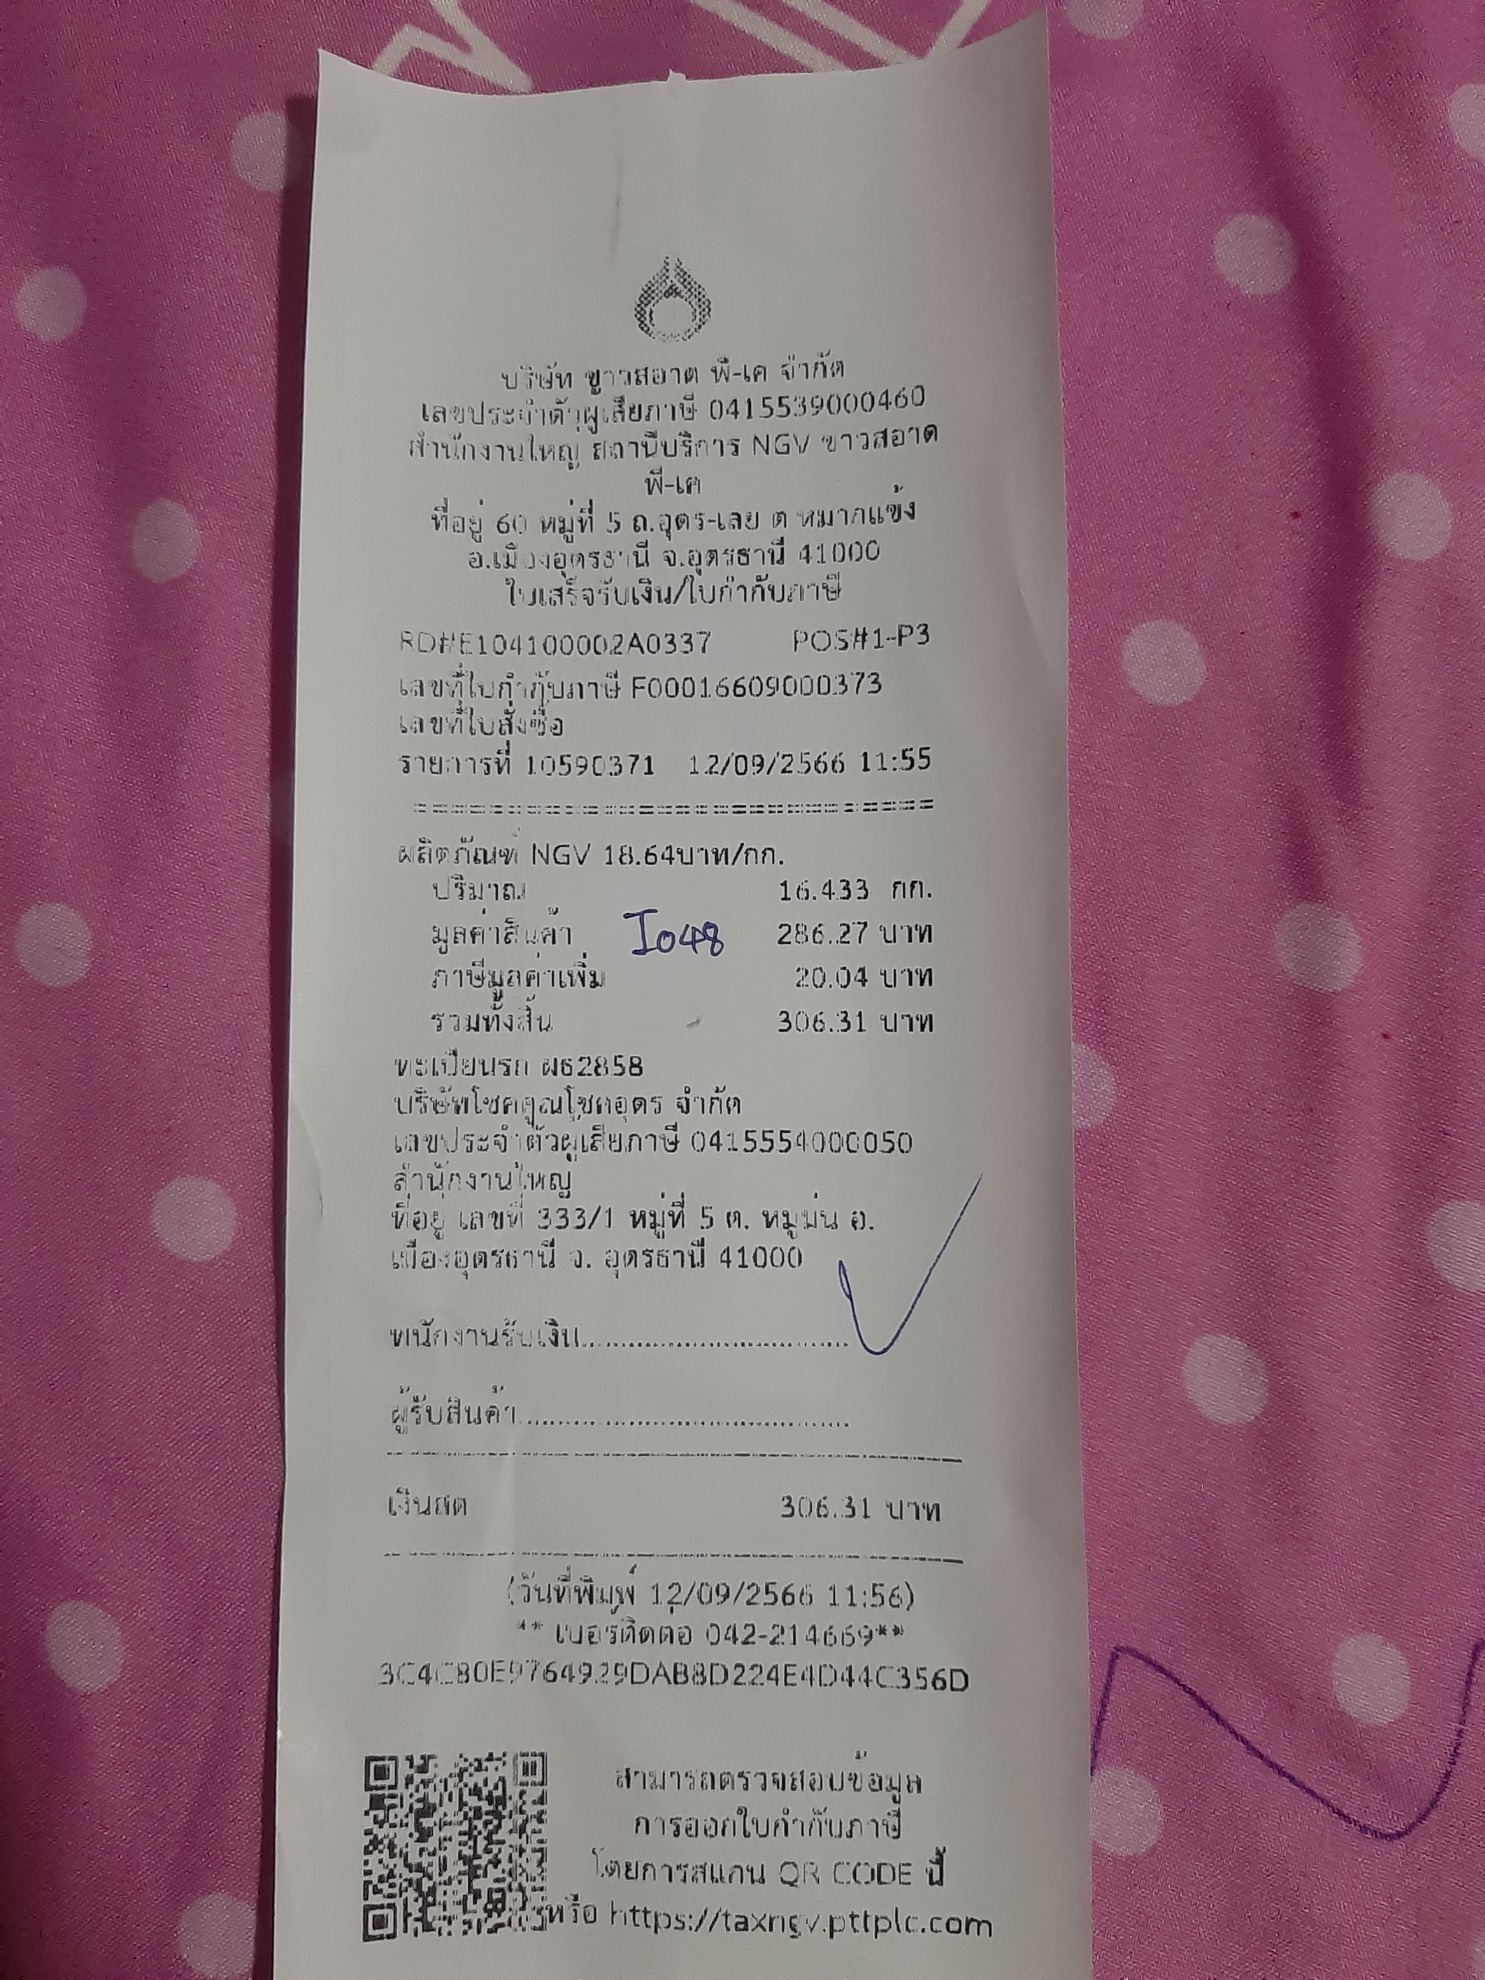 บริษัท ขาวสอาด พี-เค จำกัด
เลขประจำตัวผู้เสียภาษี 0415539000460
สำนักงานใหญ่ สถานีบริการ NGV ขาวสอาด
พี-เค
ที่อยู่ 60 หมู่ที่ 5 ถ.อุดร-เลย ต หมากแข้ง
อ.เมืองอุดรธานี จ.อุดรธานี 41000
ใบเสร็จรับเงิน/ใบกำกับภาษี
RD#E104100002A0337 POS#1-P3
เลขที่ใบกำกับภาษี F00016609000373
เลขที่ใบสั่งซื้อ
รายการที่ 10590371 12/09/2566 11:55
ผลิตภัณฑ์ NGV 18.64บาท/กก.
ปริมาณ 16.433 กก.
มูลค่าสินค้า Io48 286.27 บาท
ภาษีมูลค่าเพิ่ม 20.04 บาท
รวมทั้งสิ้น 306.31 บาท
ทะเบียนรถ ผธ2858
บริษัทโชคคูณโชคอุดร จำกัด
เลขประจำตัวผู้เสียภาษี 0415554000050
สำนักงานใหญ่
ที่อยู่ เลขที่ 333/1 หมู่ที่ 5 ต. หมูม่น อ.
เมืองอุดรธานี จ. อุดรธานี 41000
พนักงานรับเงิน
ผู้รับสินค้า
เงินสด 306.31 บาท
(วันที่พิมพ์ 12/09/2566 11:56)
** เบอร์ติดต่อ 042-214669**
3C4C80E9764929DAB8D224E4D44C356D
สามารถตรวจสอบข้อมูล
การออกใบกำกับภาษี
โดยการสแกน QR CODE นี้
หรือ https://taxngv.pttplc.com